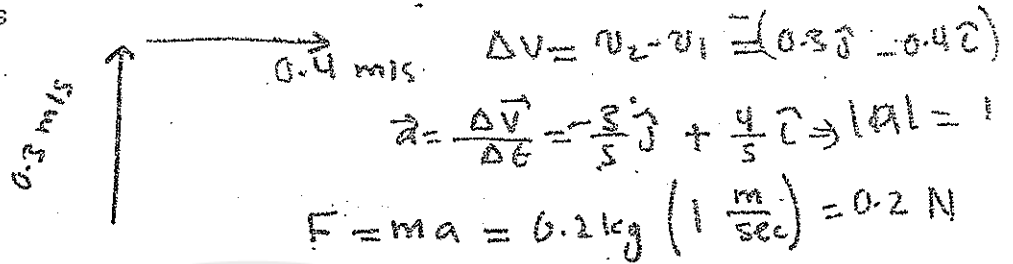 s
0.4 m/s
0.3 m/s
ΔV = v₂ - v₁ = -(0.3 ĵ - 0.4 î)
a⃗ = ΔV⃗/Δt = -3/5 ĵ + 4/5 î ⇒ |a| = 1
F = ma = 0.2 kg (1 m/sec) = 0.2 N